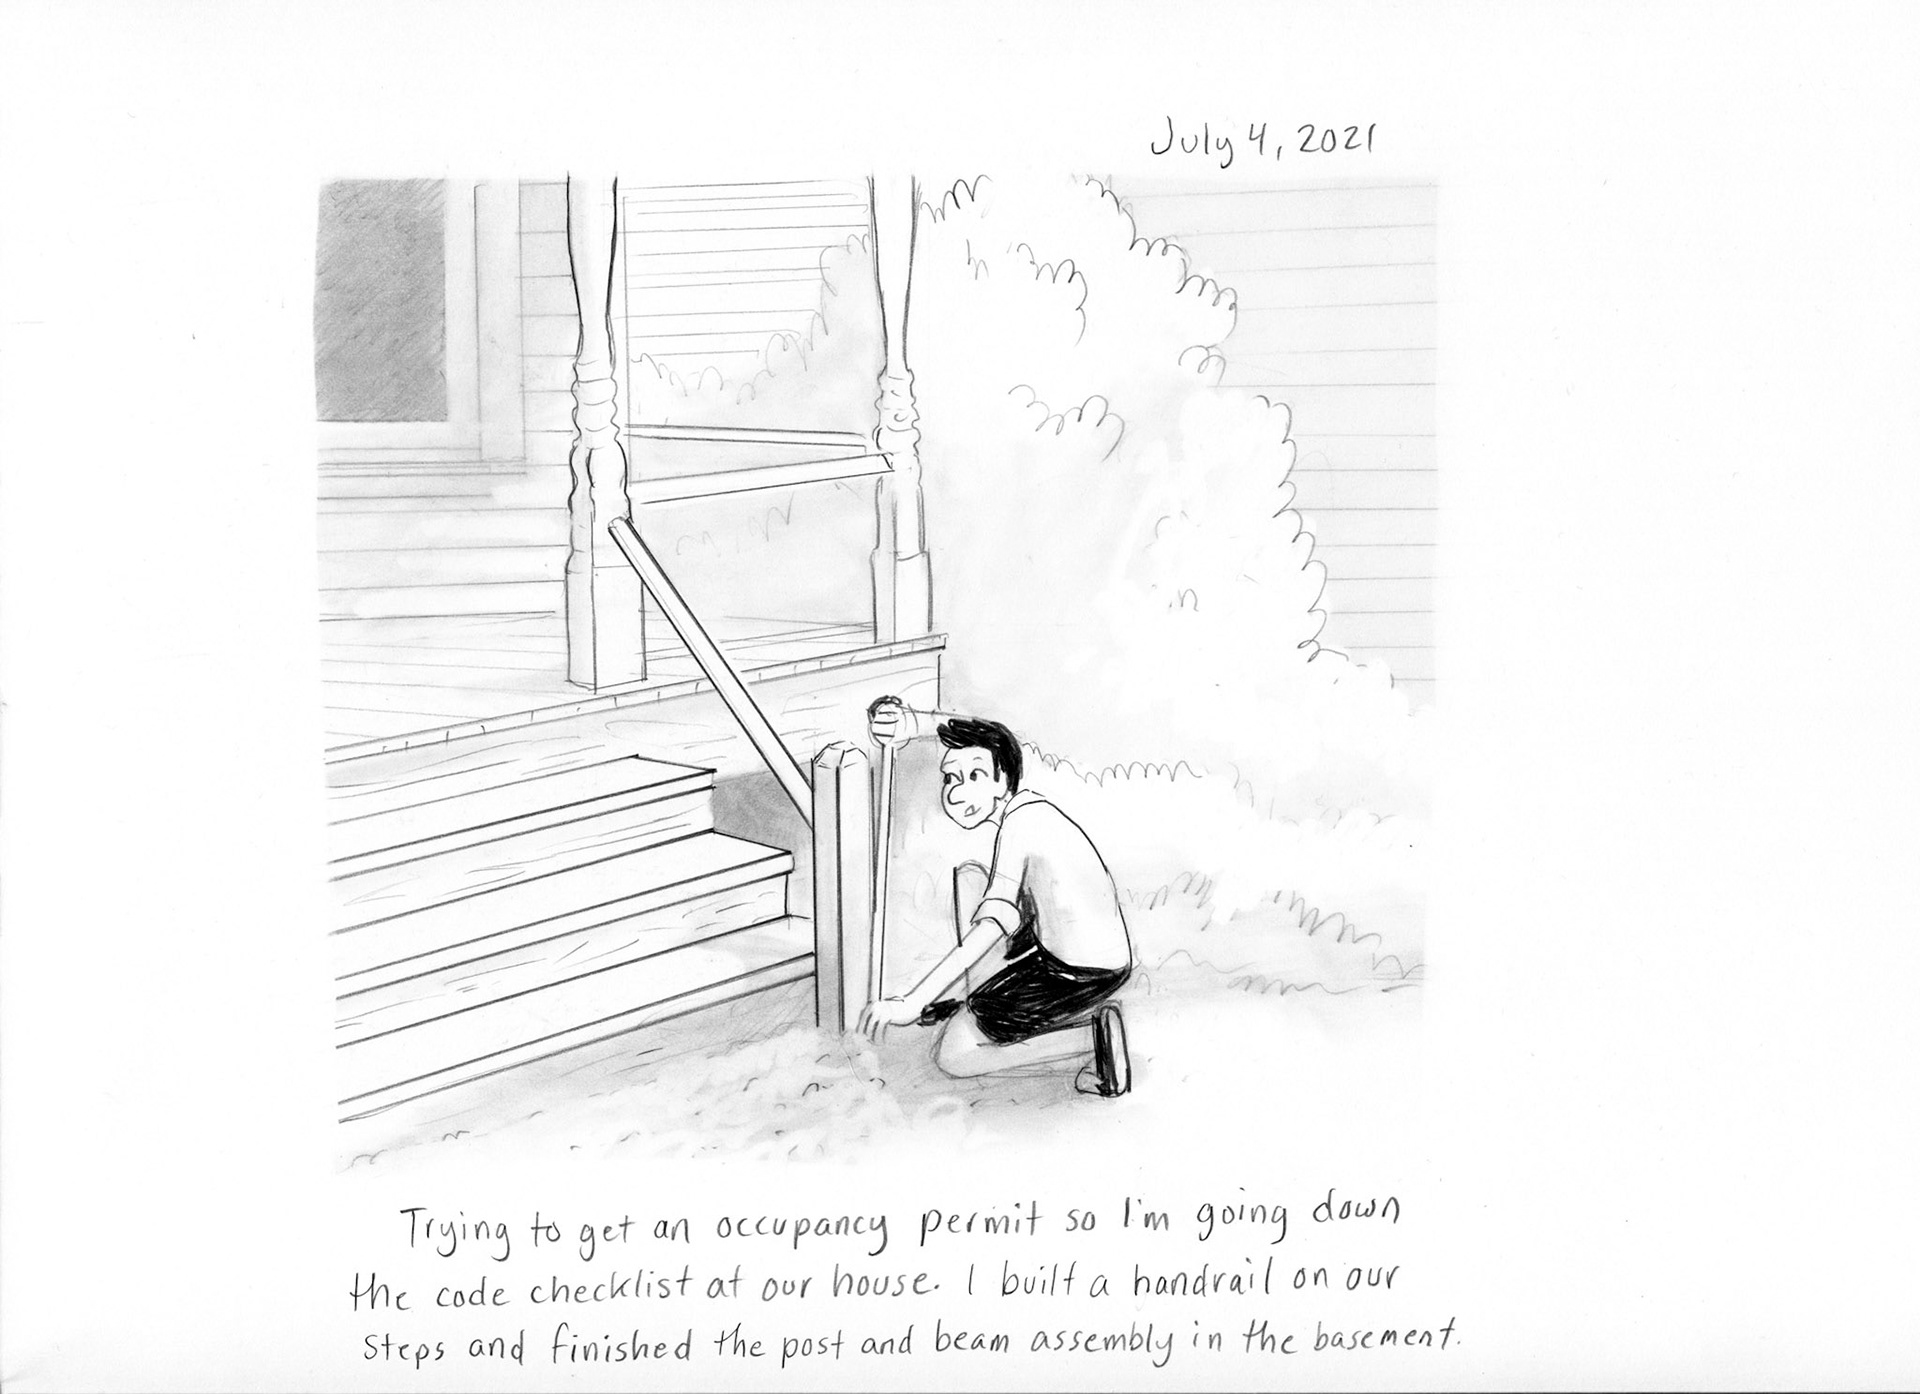 July 4, 2021
Trying to get an occupancy permit so I'm going down
the code checklist at our house. I built a handrail on our
steps and finished the post and beam assembly in the basement.